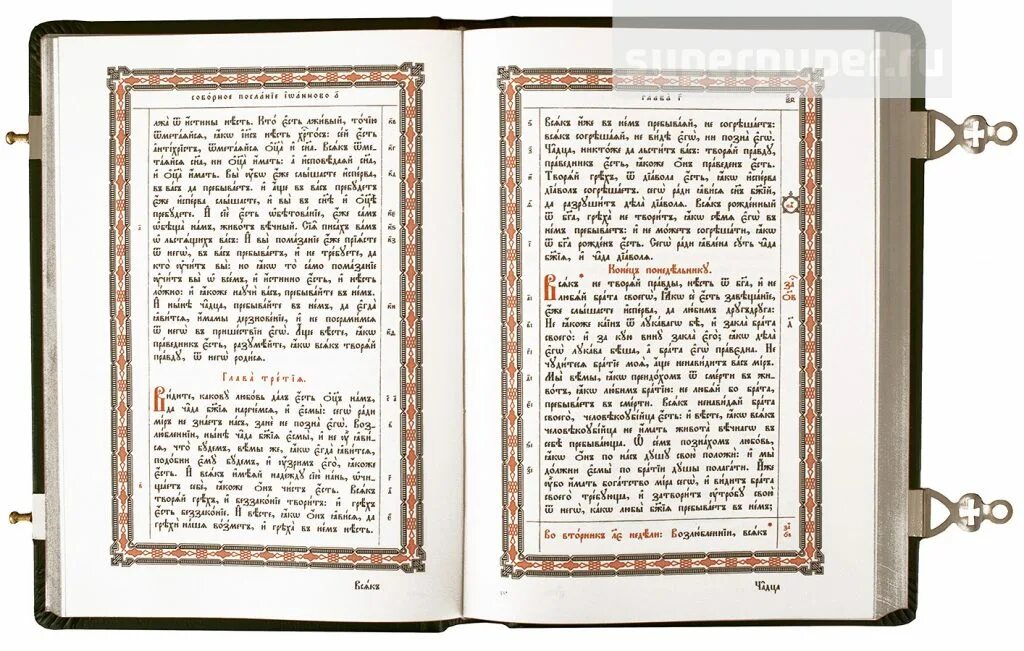 superpuper.ru
собо́рное посла́нїе і҆ѡа́нново а҃
лжа̀ ѿ и҆́стины нѣ́сть. Кто̀ є҆́сть лжи́вый, то́чїю
ѿмета́ѧйсѧ, ꙗ҆́кѡ і҆и҃съ нѣ́сть хрⷭ҇то́съ: се́й є҆́сть
а҆нті́хрїстъ, ѿмета́ѧйсѧ ѻ҆ц҃а̀ и҆ сн҃а. Всѧ́къ ѿме-
та́ѧйсѧ сн҃а, ни ѻ҆ц҃а̀ и҆́мать: а҆ и҆сповѣ́даѧй сн҃а,
и҆ ѻ҆ц҃а̀ и҆́мать. Вы̀ ᲂу҆̀бо є҆́же слы́шасте и҆спе́рва,
въ ва́съ да пребыва́етъ: и҆ а҆́ще въ ва́съ пребꙋ́детъ
є҆́же и҆спе́рва слы́шасте, и҆ вы̀ въ сн҃ѣ и҆ ѻ҆ц҃ѣ̀
пребꙋ́дете. И҆ сїѐ є҆́сть ѡ҆бѣтова́нїе, є҆́же са́мъ
ѡ҆бѣща̀ на́мъ, живо́тъ вѣ́чный. Сїѧ̑ писа́хъ ва́мъ
ѡ҆ льстѧ́щихъ ва́съ: И҆ вы̀ пома́занїе є҆́же прїѧ́сте
ѿ негѡ̀, въ ва́съ пребыва́етъ, и҆ не тре́бꙋете, да
кто̀ ᲂу҆чи́тъ вы̀: но ꙗ҆́кѡ то̀ само̀ пома́занїе
ᲂу҆чи́тъ вы̀ ѡ҆ все́мъ, и҆ и҆́стинно є҆́сть, и҆ нѣ́сть
ло́жно: и҆ ꙗ҆́коже наꙋчѝ ва́съ, пребыва́йте въ не́мъ.
И҆ ны́нѣ ча̑дца, пребыва́йте въ не́мъ, да є҆гда̀
ꙗ҆ви́тсѧ, и҆́мамы дерзнове́нїе, и҆ не посрами́мсѧ
ѿ негѡ̀ въ прише́ствїи є҆гѡ̀. А҆́ще вѣ́сте, ꙗ҆́кѡ
пра́ведникъ є҆́сть, разꙋмѣ́йте, ꙗ҆́кѡ всѧ́къ творѧ́й
пра́вдꙋ, ѿ негѡ̀ роди́сѧ.
Глава̀ тре́тїѧ.
Ви́дите, каковꙋ̀ любо́вь да́лъ є҆́сть ѻ҆ц҃ъ на́мъ,
да ча̑да бж҃їѧ нарече́мсѧ, и҆ є҆смы̀: сегѡ̀ ра́ди
мі́ръ не зна́етъ на́съ, занѐ не позна̀ є҆гѡ̀. Воз-
лю́бленнїи, ны́нѣ ча̑да бж҃їѧ є҆смы̀, и҆ не ᲂу҆̀ ꙗ҆ви́-
сѧ, что̀ бꙋ́демъ, вѣ́мы же, ꙗ҆́кѡ є҆гда̀ ꙗ҆ви́тсѧ,
подо́бни є҆мꙋ̀ бꙋ́демъ, и҆ ᲂу҆́зримъ є҆го̀, ꙗ҆́коже
є҆́сть. И҆ всѧ́къ и҆мѣ́ѧй наде́ждꙋ сїю̀ на́нь, ѡ҆чи-
ща́етъ себѐ, ꙗ҆́коже ѻ҆́нъ чи́стъ є҆́сть. Всѧ́къ
творѧ́й грѣ́хъ, и҆ беззако́нїе твори́тъ: и҆ грѣ́хъ
є҆́сть беззако́нїе. И҆ вѣ́сте, ꙗ҆́кѡ ѻ҆́нъ ꙗ҆ви́сѧ, да
грѣхѝ на́шѧ во́зметъ, и҆ грѣха̀ въ не́мъ нѣ́сть.
Всѧ́къ
глава̀ г҃
Всѧ́къ и҆́же въ не́мъ пребыва́ѧй, не согрѣша́етъ:
всѧ́къ согрѣша́ѧй, не ви́дѣ є҆гѡ̀, ни позна̀ є҆гѡ̀.
Ча̑дца, никто́же да льсти́тъ ва́съ: творѧ́й пра́вдꙋ,
пра́ведникъ є҆́сть, ꙗ҆́коже ѻ҆́нъ пра́веденъ є҆́сть.
Творѧ́й грѣ́хъ, ѿ дїа́вола є҆́сть, ꙗ҆́кѡ и҆спе́рва
дїа́волъ согрѣша́етъ. сегѡ̀ ра́ди ꙗ҆ви́сѧ сн҃ъ бж҃їй,
да разрꙋши́тъ дѣла̀ дїа́волѧ. Всѧ́къ рожде́нный
ѿ бг҃а, грѣха̀ не твори́тъ, ꙗ҆́кѡ сѣ́мѧ є҆гѡ̀ въ
не́мъ пребыва́етъ: и҆ не мо́жетъ согрѣша́ти, ꙗ҆́кѡ
ѿ бг҃а рожде́нъ є҆́сть. Сегѡ̀ ра́ди ꙗ҆вле́на сꙋ́ть ча̑да
бж҃їѧ, и҆ ча̑да дїа́волѧ.
Коне́цъ понедѣ́льникꙋ.
Всѧ́къ не творѧ́й пра́вды, нѣ́сть ѿ бг҃а, и҆ не
любѧ́й бра́та своегѡ̀, Ꙗ҆́кѡ сѐ є҆́сть завѣща́нїе,
є҆́же слы́шасте и҆спе́рва, да лю́бимъ дрꙋгдрꙋ́га:
Не ꙗ҆́коже ка́їнъ ѿ лꙋка́вагѡ бѣ̀, и҆ закла̀ бра́та
своего̀: и҆ за кꙋ́ю винꙋ̀ закла̀ є҆го̀; ꙗ҆́кѡ дѣла̀
є҆гѡ̀ лꙋка̑ва бѣ́ша, а҆ бра́та є҆гѡ̀ пра́вєдна. Не
чꙋди́тесѧ бра́тїе моѧ̑, а҆́ще ненави́дитъ ва́съ мі́ръ.
Мы̀ вѣ́мы, ꙗ҆́кѡ преидо́хомъ ѿ сме́рти въ жи-
во́тъ, ꙗ҆́кѡ лю́бимъ бра́тїю: не любѧ́й бо бра́та,
пребыва́етъ въ сме́рти. Всѧ́къ ненави́дѧй бра́та
своего̀, человѣкоꙋбі́йца є҆́сть: и҆ вѣ́сте, ꙗ҆́кѡ всѧ́къ
человѣкоꙋбі́йца не и҆́мать живота̀ вѣ́чнагѡ въ
себѣ̀ пребыва́юща. Ѡ҆ се́мъ позна́хомъ любо́вь,
ꙗ҆́кѡ ѻ҆́нъ по на́съ дꙋ́шꙋ свою̀ положѝ: и҆ мы̀
до́лжни є҆смы̀ по бра́тїи дꙋ́шы полага́ти. И҆́же
ᲂу҆̀бо и҆́мать бога́тство мі́ра сегѡ̀, и҆ ви́дитъ бра́та
своего̀ тре́бꙋюща, и҆ затвори́тъ ᲂу҆тро́бꙋ свою̀
ѿ негѡ̀, ка́кѡ любы̀ бж҃їѧ пребыва́етъ въ не́мъ;
Во вто́рникъ л҃є недѣ́ли: Возлю́бленнїи, всѧ́къ *
Ча̑дца